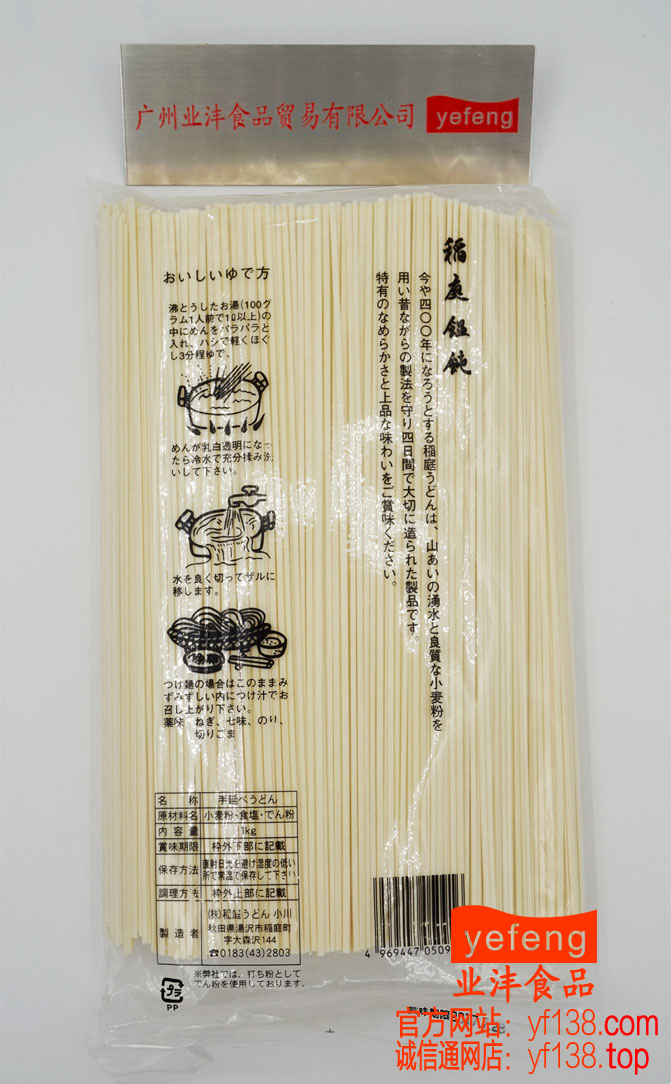 广州业沣食品贸易有限公司 yefeng
稲庭饂飩
今や四〇〇年になろうとする稲庭うどんは、山あいの湧水と良質な小麦粉を
用い昔ながらの製法を守り四日間で大切に造られた製品です。
特有のなめらかさと上品な味わいをご賞味ください。
おいしいゆで方
沸とうしたお湯(100グ
ラム1人前で1ℓ以上)の
中にめんをパラパラと
入れ、ハシで軽くほぐ
し3分程ゆで、
めんが乳白透明になっ
たら冷水で充分揉み洗
いして下さい。
水を良く切ってザルに
移します。
つけ麺の場合はこのままみ
ずみずしい内につけ汁でお
召し上がり下さい。
薬味 ねぎ、七味、のり、
切りごま
名称 手延べうどん
原材料名 小麦粉・食塩・でん粉
内容量 1kg
賞味期限 枠外下部に記載
保存方法 直射日光を避け湿度の低い
所で常温で保存して下さい
調理方法 枠外上部に記載
製造者 (株)稲庭うどん小川
秋田県湯沢市稲庭町
字大森沢144
☎0183(43)2803
※弊社では、打ち粉として
でん粉を使用しております。
プラ
PP
4 969447 0509
賞味期限
yefeng
业沣食品
官方网站：yf138.com
诚信通网店：yf138.top